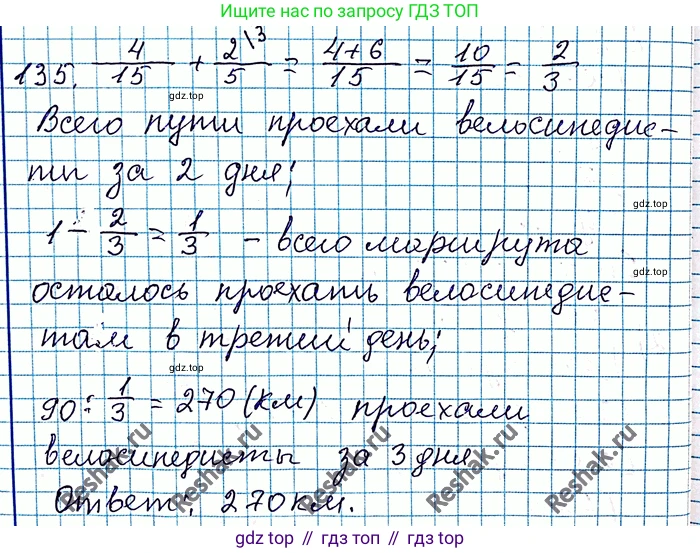 Ищите нас по запросу ГДЗ ТОП
135. 4/15 + 2\3/5 = 4+6/15 = 10/15 = 2/3
gdz.top
Всего пути проехали велосипедис-
ты за 2 дня;
gdz.top
1 - 2/3 = 1/3 - всего маршрута
gdz.top
осталось проехать велосипедис-
там в третий день;
gdz.top
90 : 1/3 = 270 (км) проехали
велосипедисты за 3 дня
Reshak.ru Reshak.ru Reshak.ru Reshak.ru
gdz.top
Ответ: 270 км.
gdz top // gdz top // gdz.top